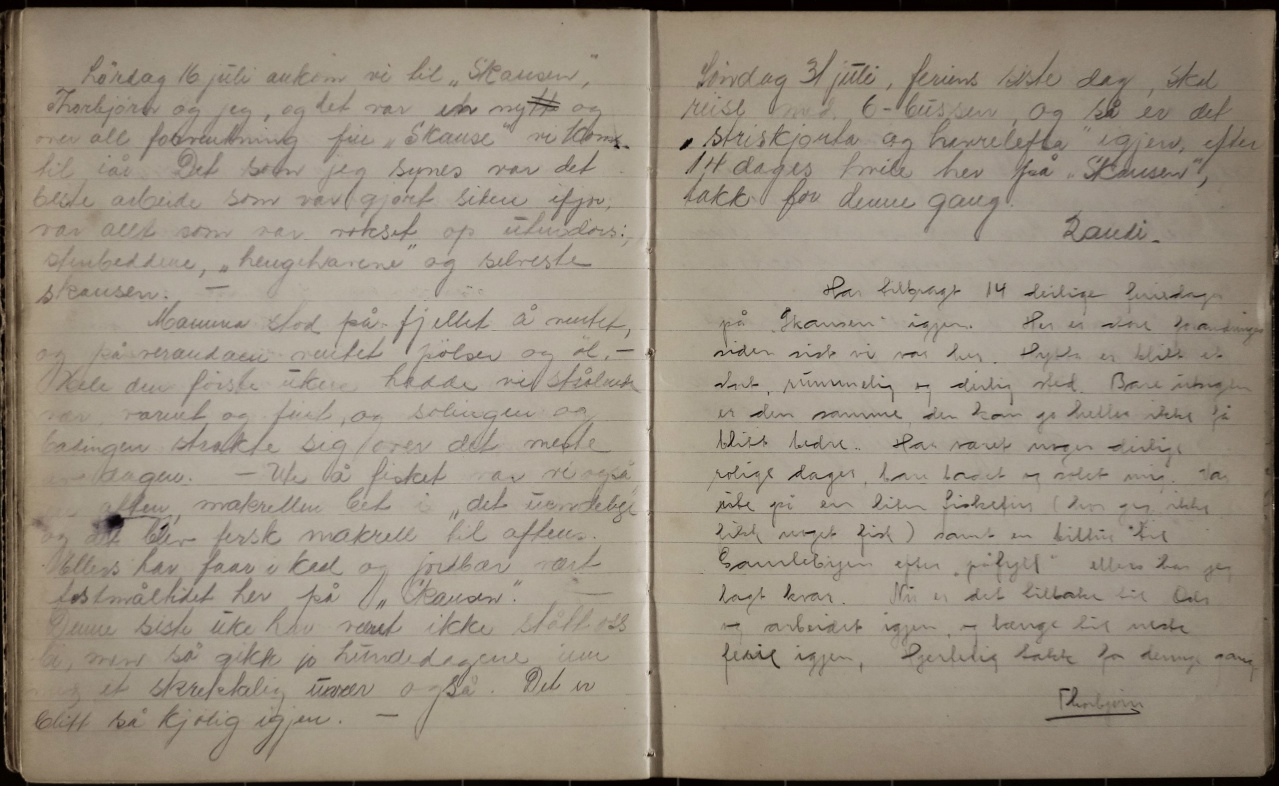 Lørdag 16 juli ankom vi til „Skansen",
Thorbjørn og jeg, og det var en ny og
over all forventning fin „Skanse" vi kom
til iår. Det som jeg synes var det
beste arbeide som var gjort siden ifjor,
var allt som var vokset op utendørs:
stenbeddene, „hengehavene" og selveste
skansen. —
Mamma stod på fjellet å ventet,
og på verandaen ventet pölser og öl. —
Hele den første uken hadde vi strålende
var varmt og fint, og solingen og
badingen strakte sig over det meste
dagen. — Ute å fisket var vi også
aften, makrellen bet i „det uendelige
og det blev fersk makrell til aftens.
Ellers har faar i kaal og jordbær vært
festmåltidet her på „Skansen". —
Denne siste uke har været ikke stått oss
bi, men så gikk jo hundedagene inn
med et skrekkelig uvær også. Det er
blitt så kjølig igjen. —
Søndag 31 juli, feriens siste dag, skal
reise med 6-bussen, og så er det
„striskjorta og havrelefsa" igjen, efter
14 dages hvile her på „Skansen",
takk for denne gang.
Randi.
Har tilbragt 14 deilige feriedager
på „Skansen" igjen. Her er store forandringer
siden sist vi var her. Hytta er blitt et
stort, rummelig og deilig sted. Bare utsigten
er den samme den kan jo heller ikke få
blitt bedre. Har været noen deilige
rolige dager, har badet og solet mig. Var
ute på en liten fisketur (hvor jeg ikke
fikk noget fisk) samt en biltur til
Gamlebyen efter „påfyll" ellers har jeg
lagt kvar. Nu er det tilbake til Oslo
og arbeidet igjen, og længe til neste
ferie igjen, Hjertelig takk for denne gang
Thorbjørn